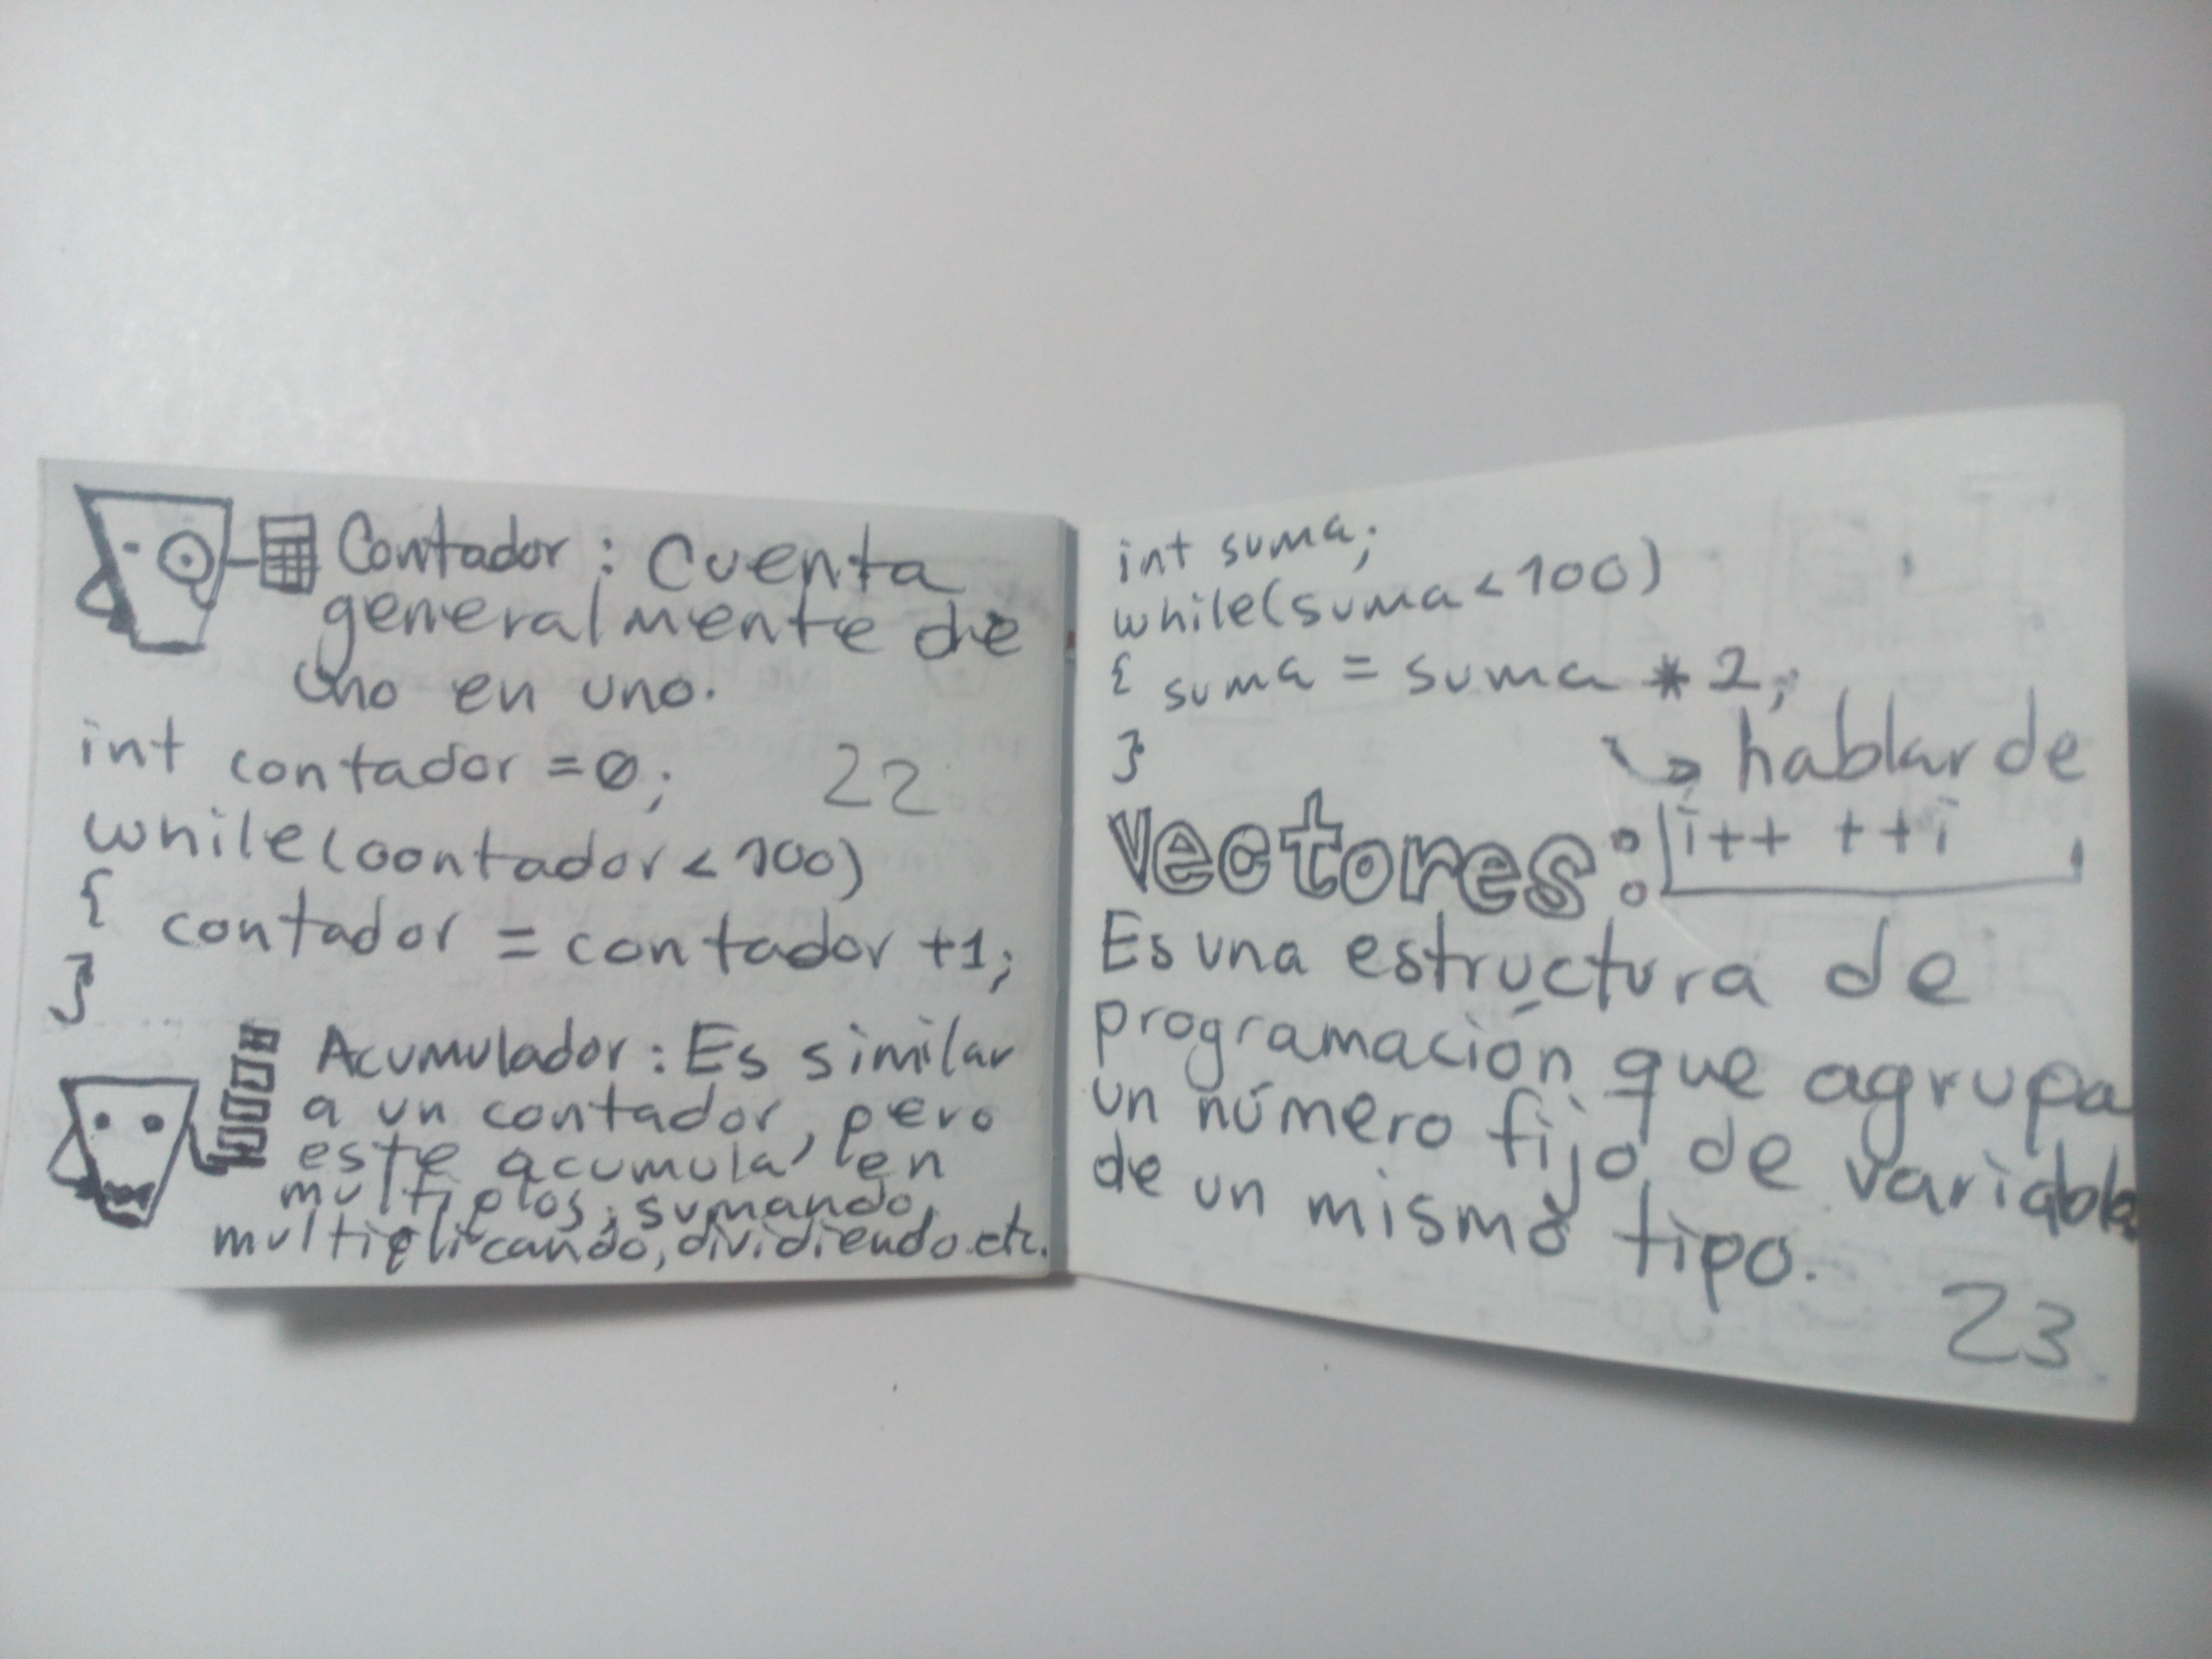 Contador: Cuenta
generalmente de
uno en uno.
int contador = 0;
22
while(contador < 100)
{ contador = contador +1;
}
Acumulador: Es similar
a un contador, pero
este acumula en
multiplos; sumando,
multiplicando, dividiendo etc.
int suma;
while(suma < 100)
{ suma = suma * 2;
}
hablar de
i++ ++i
Vectores:
Es una estructura de
programación que agrupa
un número fijo de variable
de un mismo tipo.
23